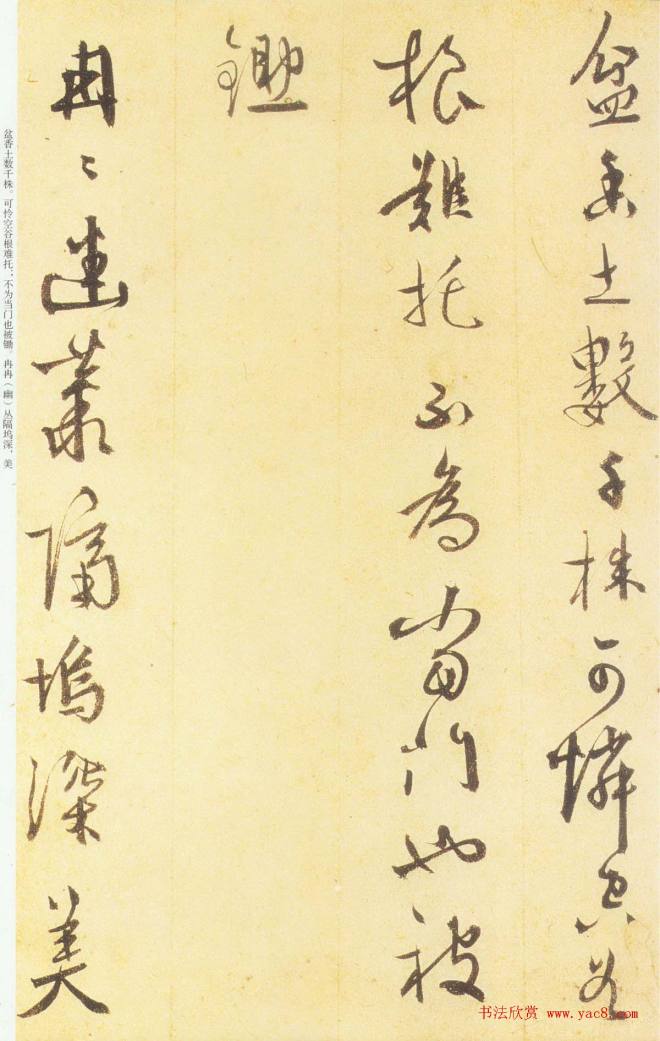 盆香土數千株可憐空谷
根難托不為當門也被
鋤
冉〻幽叢隔塢深美
盆香土数千株。可怜空谷根难托，不为当门也被锄。冉冉（幽）丛隔坞深，美
书法欣赏 www.yac8.com